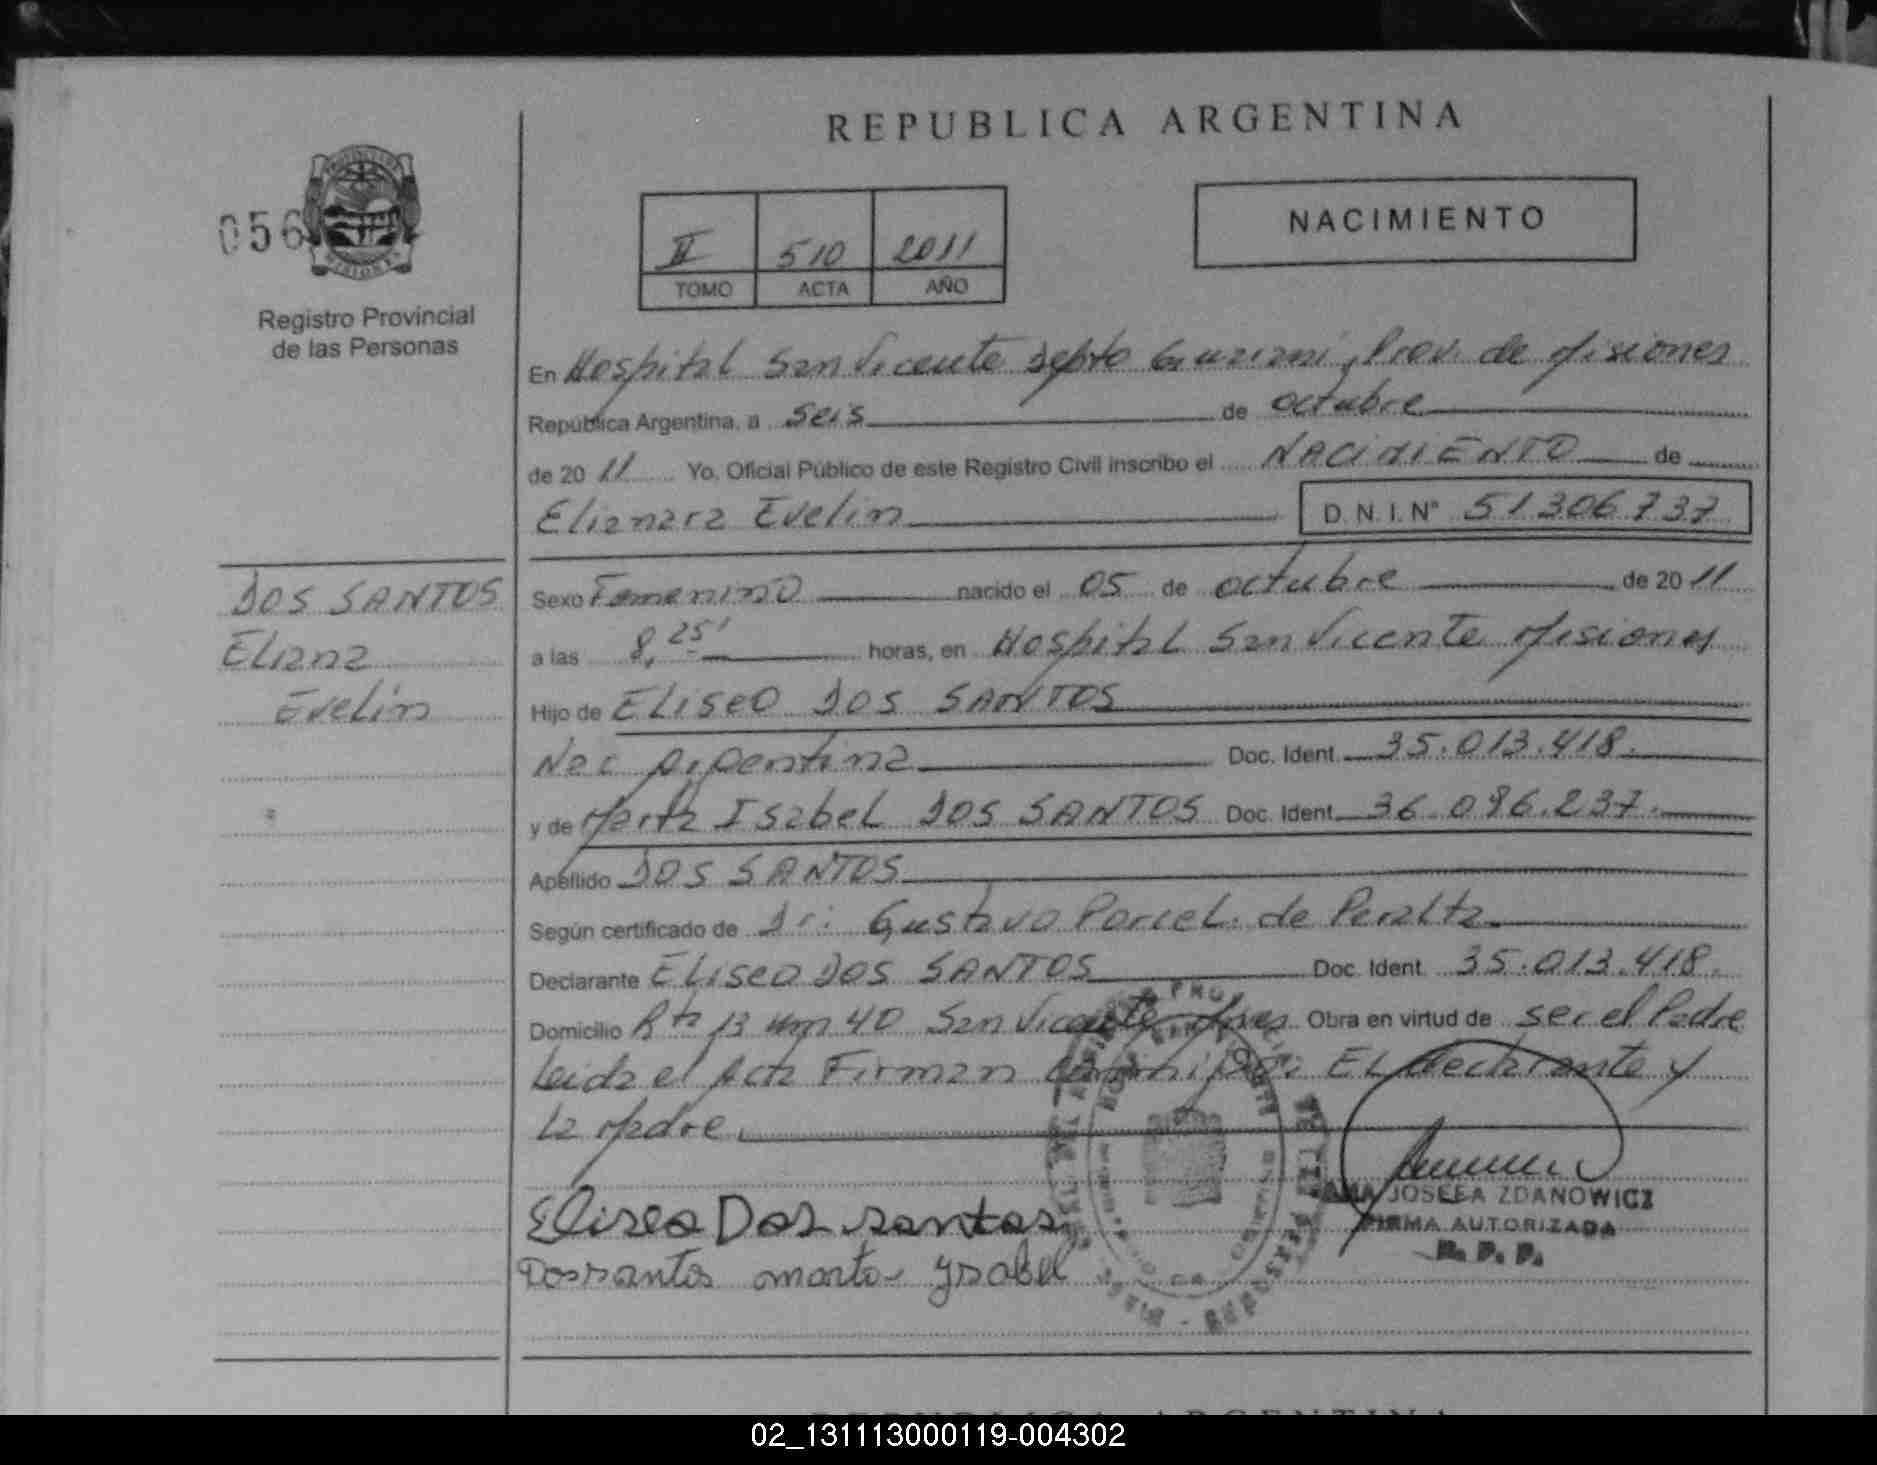 REPUBLICA ARGENTINA
NACIMIENTO
056
II 510 2011
TOMO ACTA AÑO
Registro Provincial
de las Personas
En Hospital San Vicente Depto Guarani, Prov. de Misiones
República Argentina, a seis de octubre
de 20 11 Yo, Oficial Público de este Registro Civil inscribo el NACIMIENTO de
Elianara Evelin D.N.I.N° 51.306.737
DOS SANTOS
Eliana
Evelin
Sexo Femenino nacido el 05 de octubre de 20 11
a las 8,25' horas, en Hospital San Vicente Misiones
Hijo de ELISEO DOS SANTOS
Nac Argentina Doc. Ident. 35.013.418.
y de Marta Isabel DOS SANTOS Doc. Ident. 36.096.237.
Apellido DOS SANTOS
Según certificado de Dr: Gustavo Porcel de Peralta
Declarante ELISEO DOS SANTOS Doc. Ident. 35.013.418.
Domicilio Rta 13 Km 40 San Vicente Mnes Obra en virtud de ser el Padre
Leida el Acta Firman El declarante y
la Madre.
Eliseo Dos santos
Dossantos marta ysabel
ANA JOSEFA ZDANOWICZ
FIRMA AUTORIZADA
R. P. P.
02_131113000119-004302